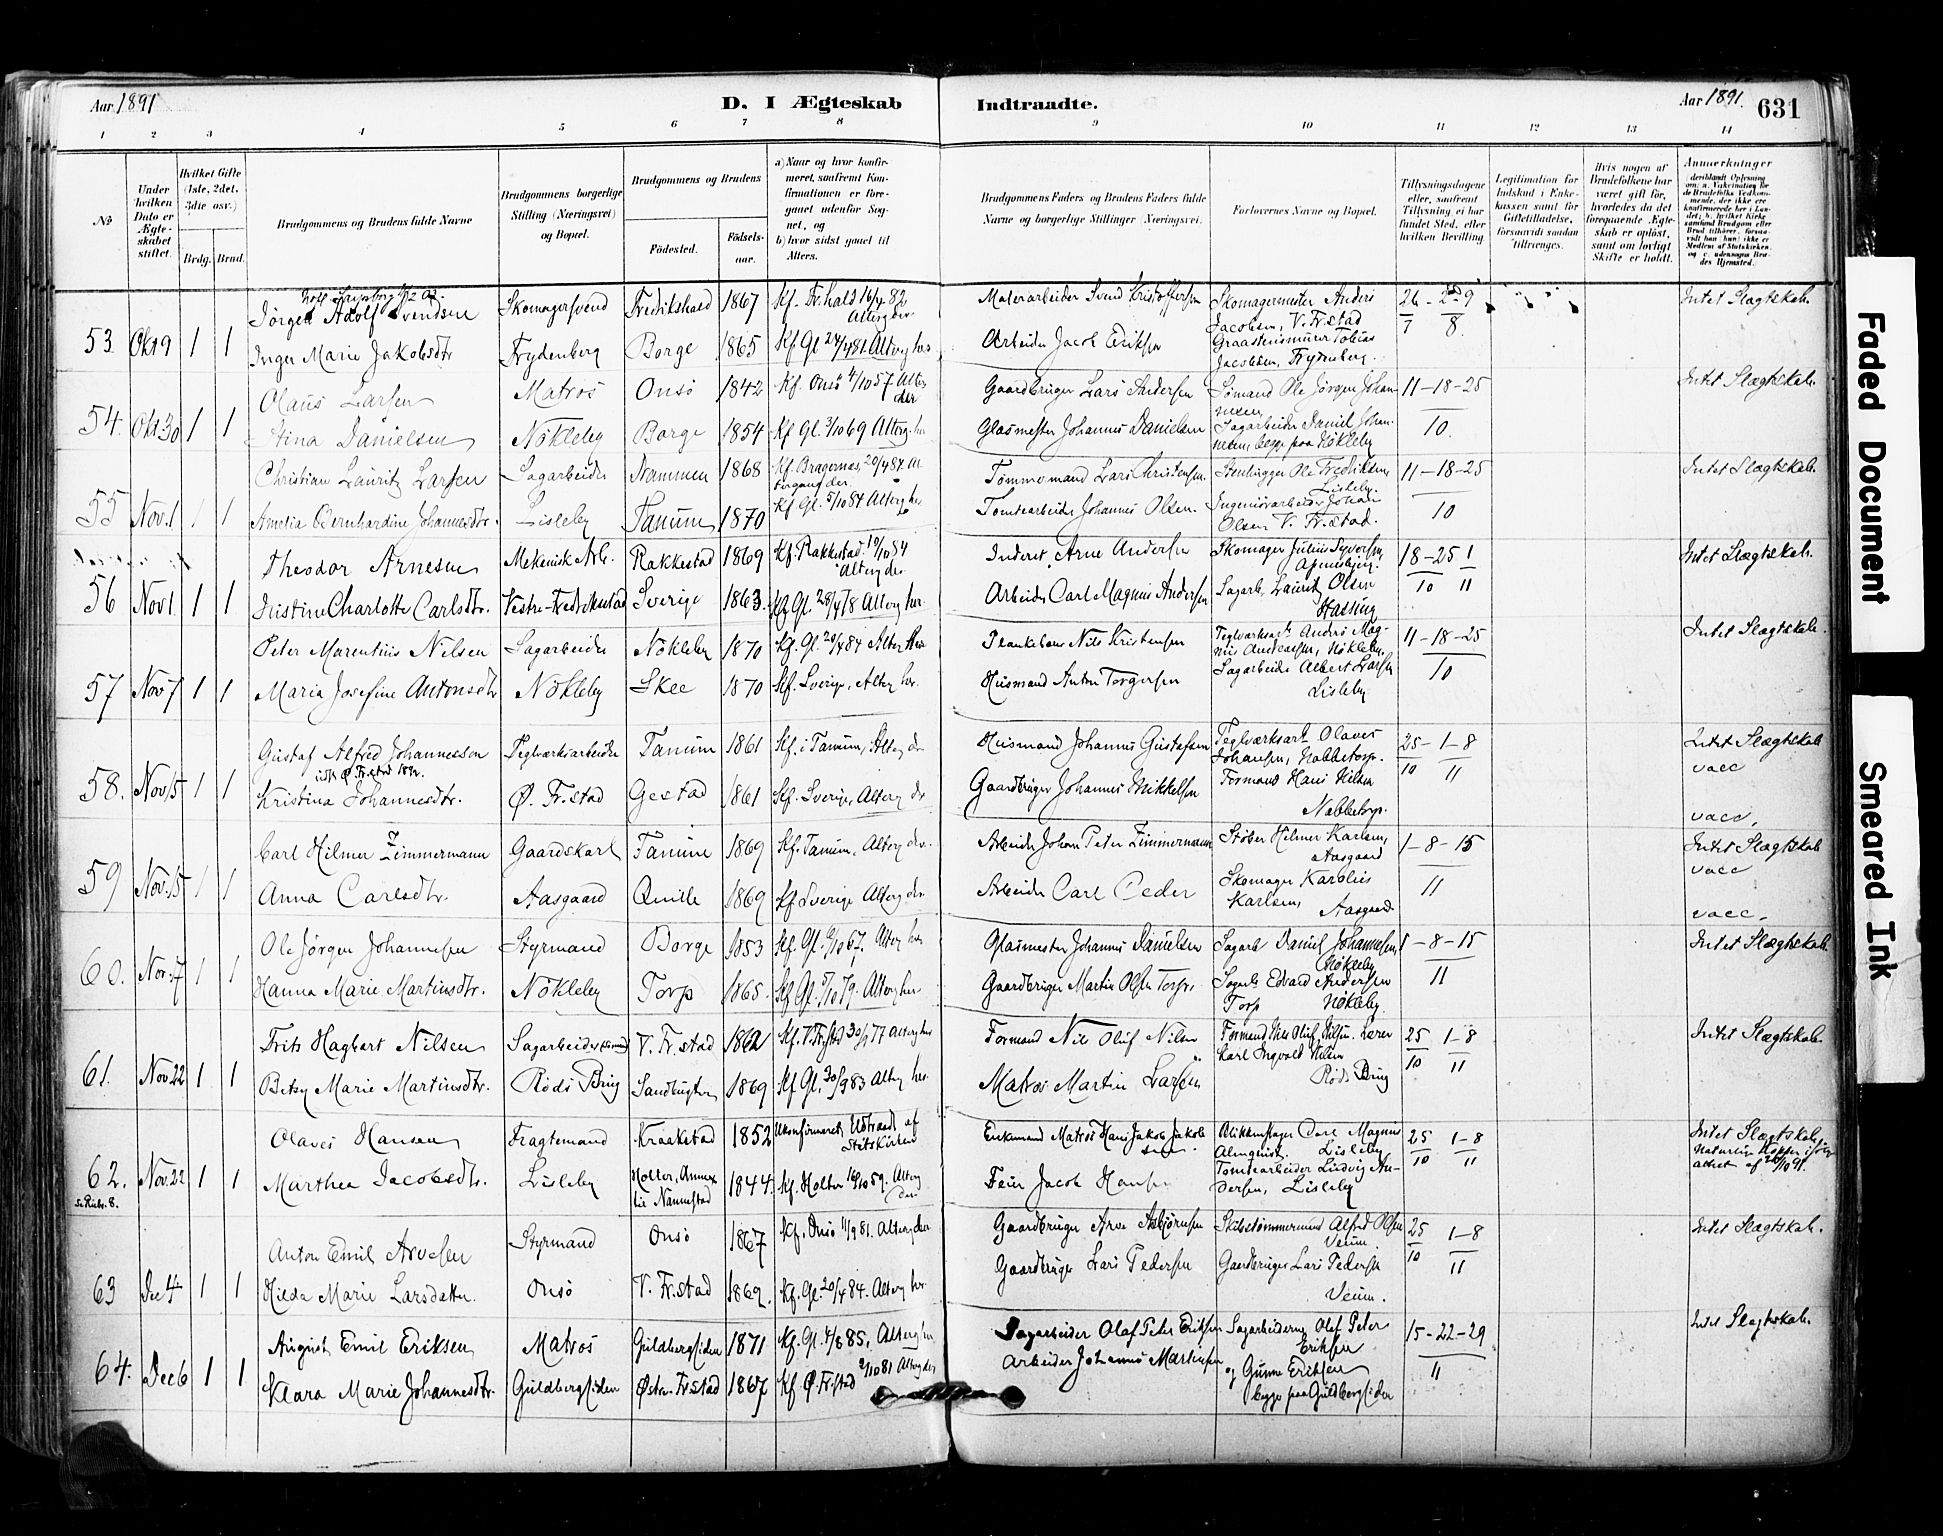 Aar 1891
D. I Ægteskab Indtraadte.
Aar 1891. 631
1 2 3 4 5 6 7 8 9 10 11 12 13 14
No
Under hvilken Dato er Ægteskabet stiftet.
Hvilket Gifte (1ste, 2det, 3die osv.)
Brdg. Brud.
Brudgommens og Brudens fulde Navne
Brudgommens borgerlige Stilling (Næringsvei) og Bopæl.
Brudgommens og Brudens
Födested. Födselsaar.
a) Naar og hvor konfirmeret, saafremt Konfirmationen er foregaaet udenfor Sognet, og
b) hvor sidst gaaet til Alters.
Brudgommens Faders og Brudens Faders fulde Navne og borgerlige Stillinger (Næringsvei).
Forlovernes Navne og Bopæl.
Tillysningsdagene eller, saafremt Tillysning ei har fundet Sted, efter hvilken Bevilling
Legitimation for Indskud i Enkekassen samt for Giftetilladelse, forsaavidt saadan tiltrænges.
Hvis nogen af Brudefolkene har været gift før, hvorledes da det foregaaende Ægteskab er opløst, samt om lovligt Skifte er holdt.
Anmerkninger
53. Okt 9 1 1
Jörgen Adolf Svendsen Skomagersvend Fredrikshald 1867 Kf. Fr.hald 16/4 82 Alterg der
Materarbeider Svend Kristoffersen Skomagermester Anders Jacobsen, V. Fr.stad 26/7 2-9/8 Intet Slægtskab.
Inger Marie Jakobsdtr Frydenberg Borge 1865 Kf Gl 24/4 81. Alterg her
Arbeider Jacob Eriksen Graastensmurer Tobias Jacobsen, Frydenberg.
54. Okt 30 1 1
Olaus Larsen Matros Onsö 1842 Kf. Onsö 4/10 57 Alterg der
Gaardbruger Lars Andersen Sömand Ole Jörgen Johannesen 11-18-25/10. Intet Slægtskab.
Stina Danielsen Nökleby Borge 1854 Kf Gl. 3/10 69 Alterg her
Glasmester Johannes Danielsen Sagarbeider Daniel Johannesen begge paa Nökleby
55 Nov. 1 1 1
Christian Lauritz Larsen Sagarbeider Drammen 1868 Kf. Bragernæs 20/4 84
Tömmermand Lars Christensen. Stenhugger Ole Fredriksen Lisleby. 11-18-25/10 Intet Slægtskab.
Amelia Bernhardine Johannesdtr. Lisleby Tanum 1870 Kf. Gl. 5/10 84 Alterg her
Tomtearbeider Johannes Olsen. Ingeniörarbeider Johan Olsen V. Fr.stad.
56 Nov 1. 1 1
Theodor Arnesen Mekanisk Arb. Rakkestad 1869 Kf. Rakkestad 19/10 84 Alterg der
Inderst Arne Andersen Skomager Julius Syversen 18-25/10 1/11 Intet Slægtskab.
Justine Charlotte Carlsdtr. Vestre Fredrikstad Sverige 1863. Kf Gl. 28/4 78 Alterg her.
Arbeider Carl Magnus Andersen Sagarb. Lauritz Olsen Hassing
57 Nov 7 1 1
Peter Marentius Nilsen Sagarbeider Nökleby 1870 Kf. Gl. 20/4 84 Alterg her
Plankebærer Nils Kristensen Teglværksarb. Anders Magnus Andersen, Nökleby. 11-18-25/10 Intet Slægtskab.
Maria Josefine Antonsdtr Nökleby Skee 1870 Kf. Sverige, Alterg her.
Husmand Anton Torgersen Sagarbeider Albert Larsen Lisleby
58. Nov 15 1 1
Gustaf Alfred Johannesson Teglværksarbeider Tanum 1861 Kf. i Tanum, Alterg der
Husmand Johannes Gustafsen Teglværksarb. Olaves Johansen, Nabbetorp. 25/10 1-8/11 Intet Slægtskab vacc
udfl. Ø. Fr.stad 1892.
Kristina Johannesdtr. Ø. Fr.stad Gestad 1861 Kf. Sverige, Alterg der
Gaardbruger Johannes Mikkelsen Formand Hans Nilsen Nabbetorp. vacc.
59 Nov. 15 1 1
Carl Hilmer Zimmermann Gaardskarl Tanum 1869 Kf. Tanum, Alterg der.
Arbeider Johan Peter Zimmermann Støber Hilmer Karlsen, Aasgaard 1-8-15/11 Intet Slægtskab vacc
Anna Carlsdtr. Aasgaard Qville 1869 Kf Sverige Alterg der
Arbeider Carl Ceder Skomager Karolius Karlsen, Aasgaard. vacc.
60. Nov. 17 1 1
Ole Jörgen Johannesen Styrmand Borge 1853 Kf. Gl. 6/10 67. Alterg her
Glasmester Johannes Danielsen Sagarb. Daniel Johannesen, Nökleby 1-8-15/11 Intet Slægtskab.
Hanna Marie Martinsdtr. Nökleby Torp 1865. Kf Gl. 5/10 79. Alterg her
Gaardbruger Martin Olsen Torp. Sagarb Edvard Andersen Torp Nökleby.
61. Nov 22 1 1
Frits Hagbart Nilsen Sagarbeider V. Fr.stad 1862 Kf. V. Fr.stad 30/9 77 Alterg her
Formand Nils Oluf Nilsen Formand Nils Oluf Nilsen. Lærer Karl Ingvald Nilsen Röds Brug 25/10 1-8/11 Intet Slægtskab.
Betsy Marie Martinsdtr. Röds Brug Sandbugten 1869 Kf Gl. 30/9 83 Alterg her.
Matros Martin Larsen
62. Nov. 22 1 1
Se Rubr. 8.
Olaves Hansen Fragtemand Kraakstad 1852 Ukonfirmeret, Udtraadt af Statskirken
Enkemand Matros Hans Jakob Jakobsen Blikkenslager Carl Magnus Almquist, Lisleby. 25/10 1-8/11 Intet Slægtskab.
Marthea Jacobsdtr. Lisleby Holter, Annex til Nannestad 1844. Kf. Holter 16/10 59. Alterg
Feier Jacob Hansen Tomtearbeider Ludvig Andersen, Lisleby
63 Dec 4 1 1
Anton Emil Arvesen Styrmand Onsö 1867 Kf. Onsö 11/9 81. Alterg der
Gaardbruger Arve Asbjörnsen Skibstömmermand Alfred Olsen Veum 25/10 1-8/11 Intet Slægtskab.
Hilda Marie Larsdatter. Onsö V. Fr.stad 1862. Kf. Gl. 20/4 84. Alterg her
Gaardbruger Lars Pedersen Gaardbruger Lars Pedersen Veum.
64. Dec 6 1 1
August Emil Eriksen Matros Guldbergsiden 1871 Kf. Gl. 4/8 85, Alterg her
Sagarbeider Olaf Peter Eriksen Sagarbeiderne Olaf Peter Eriksen 15-22-29/11 Intet Slægtskab.
Klara Marie Johannesdtr. Guldbergsiden Østre Fr.stad 1867 Kf Ø. Fr.stad 2/10 81 Alterg der
Arbeider Johannes Martinsen og Gunne Eriksen begge paa Guldbergsiden
Faded Document
Smeared Ink